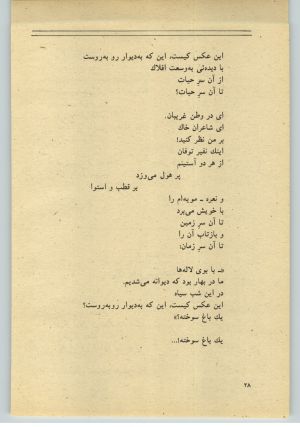 این عکس کیست، این که به‌دیوار رو به‌روست
با دیده‌ئی به‌وسعت افلاك
از آن سرِ حیات
تا آن سرِ حیات؟
ای در وطن غریبان.
ای شاعران خاك
بر من نظر کنید!
اینك نفیر توفان
از هر دو آستینم
پر هول می‌وزد
بر قطب و استوا
و نعره ـ مویه‌ام را
با خویش می‌برد
تا آن سرِ زمین
و بازتاب آن را
تا آن سرِ زمان:
«ـ با بوی لاله‌ها
ما در بهار بود که دیوانه می‌شدیم.
در این شب سیاه
این عکس کیست، این که به‌دیوار روبه‌روست؟
یك باغ سوخته؟»
یك باغ سوخته!...
۲۸